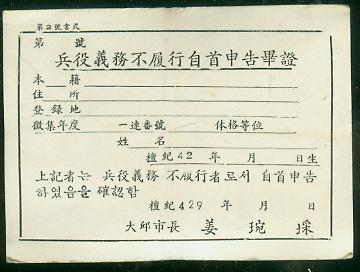 第2號書式
第 號
兵役義務不履行自首申告畢證
本 籍
住 所
登録地
徵集年度 一連番號 体格等位
姓 名
檀紀42 年 月 日生
上記者는 兵役義務 不履行者로서 自首申告
하였음을 確認함
檀紀429 年 月 日
大邱市長 姜 琬 埰